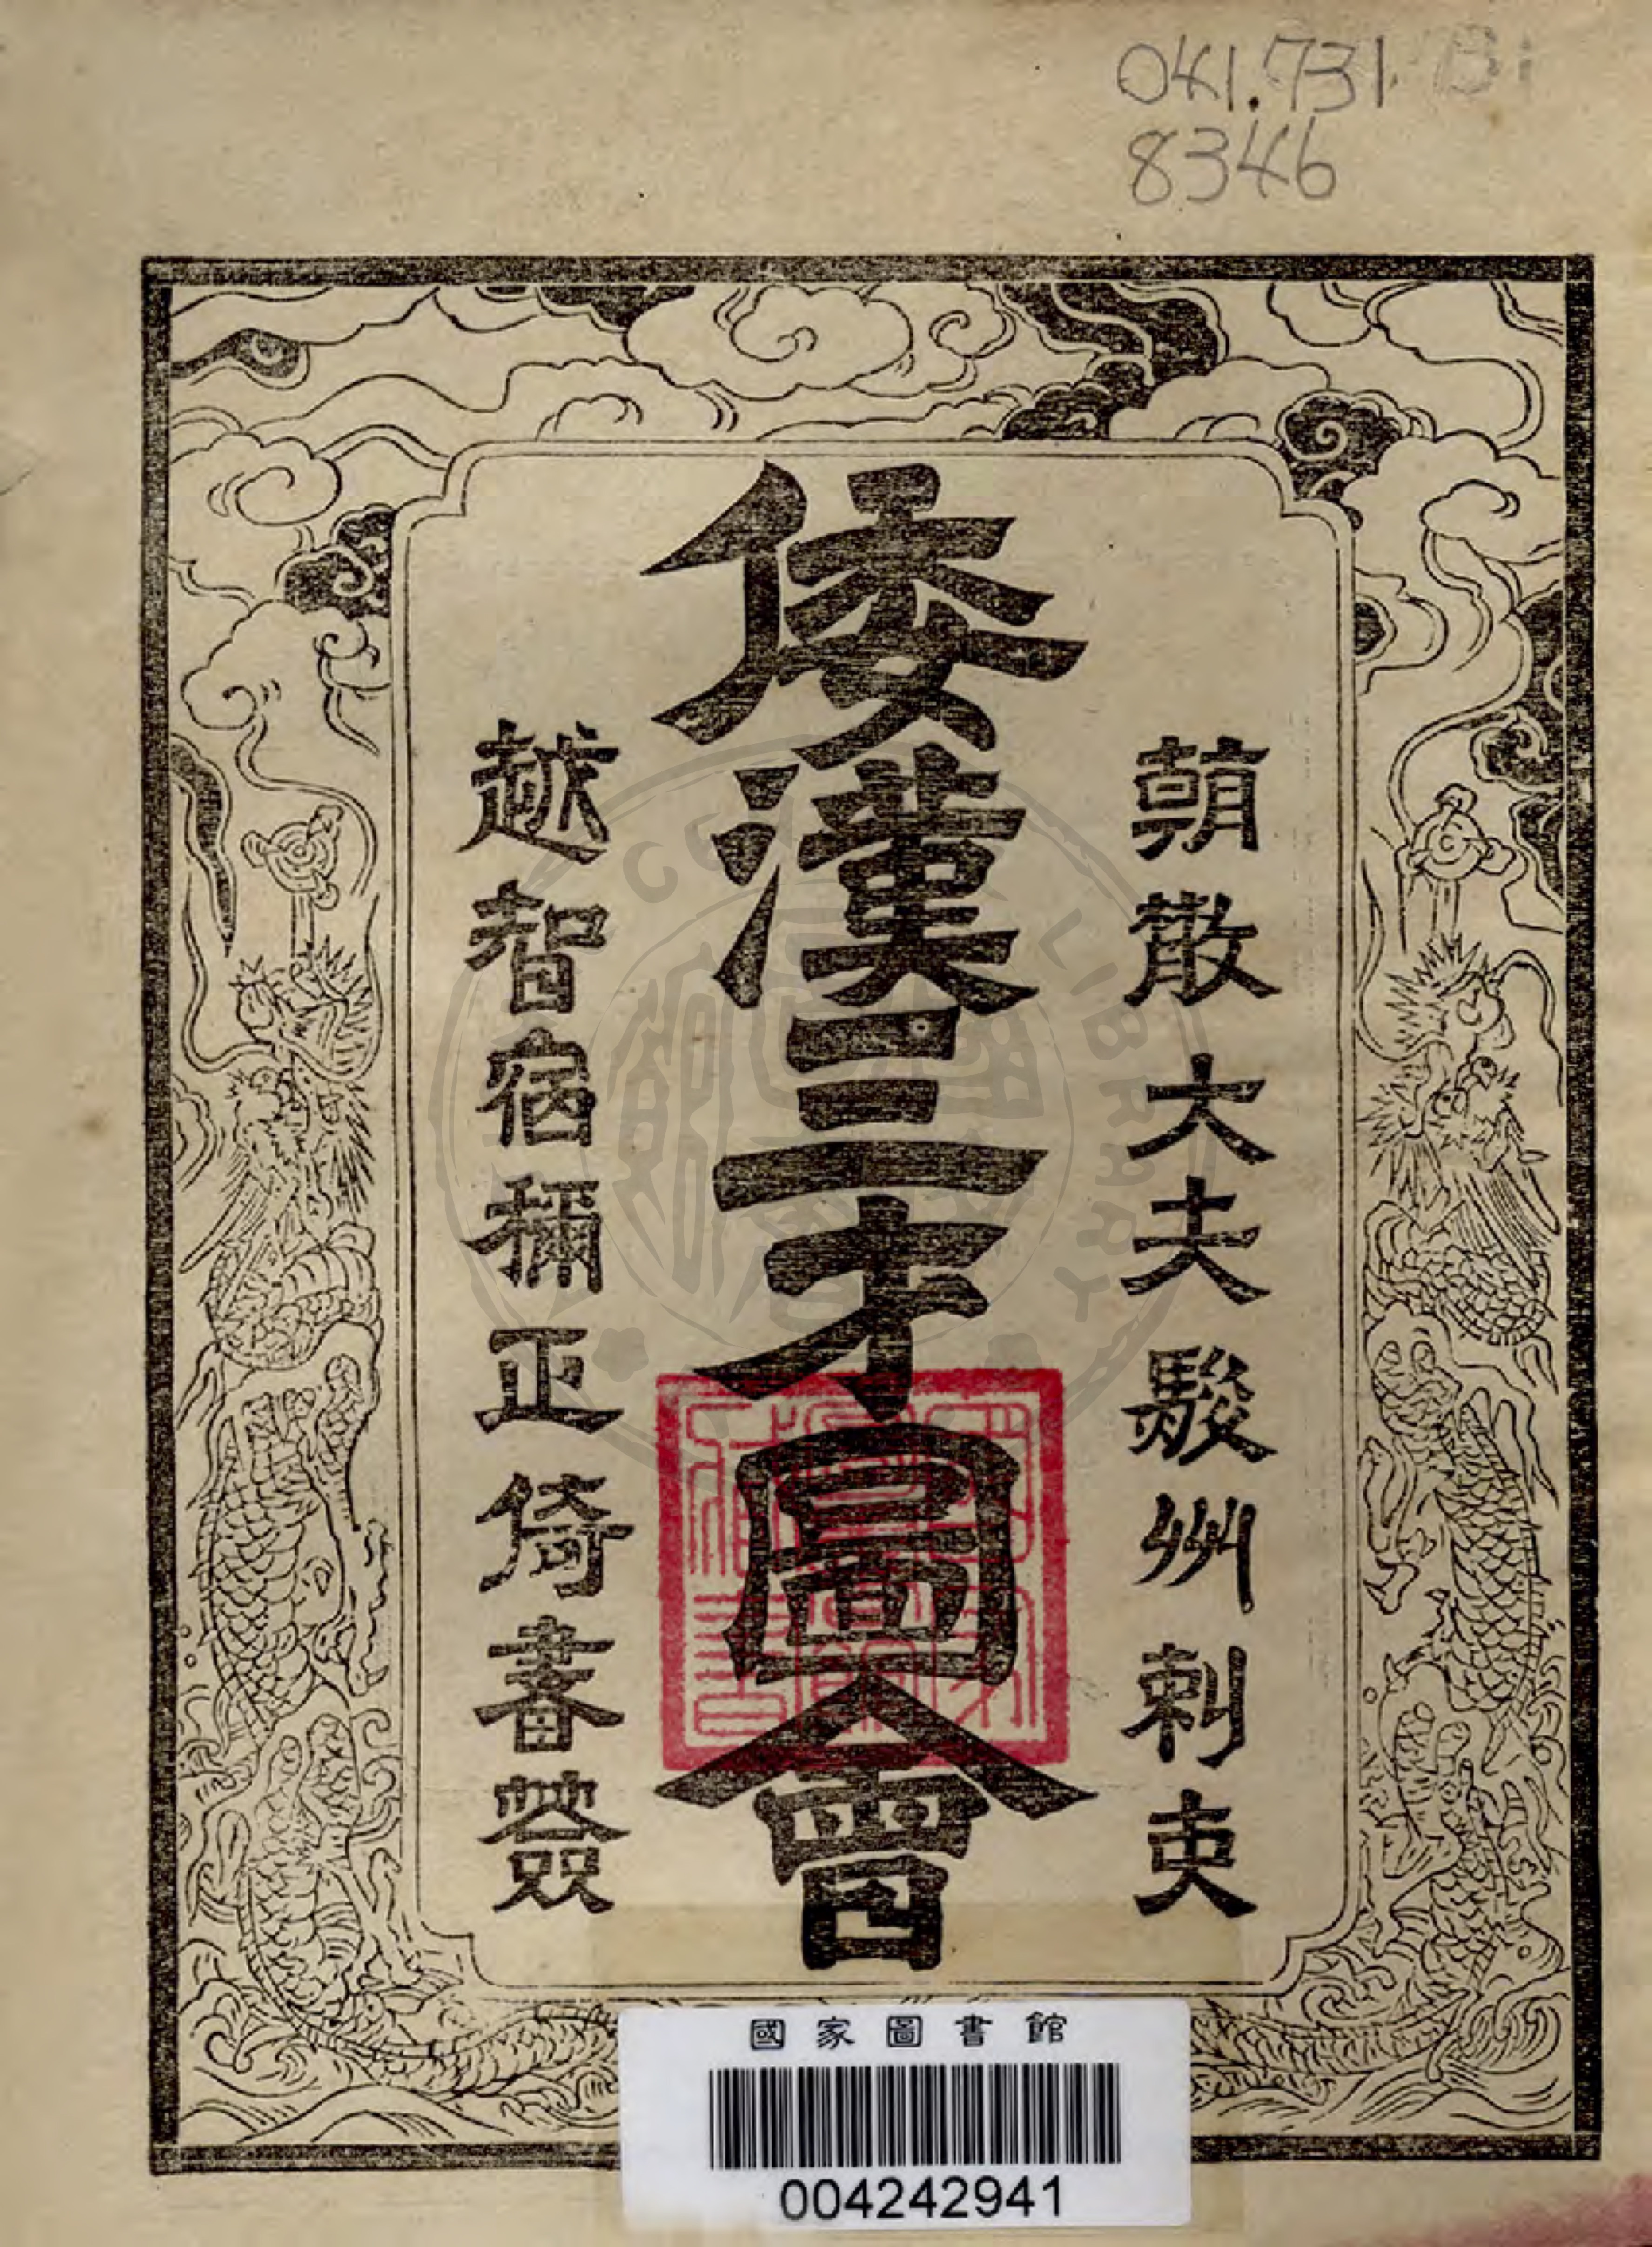 041.731 Bi
8346
朝散大夫駿州刺史
倭漢三才圖會
越智宿禰正倚書簽
國家圖書館
004242941